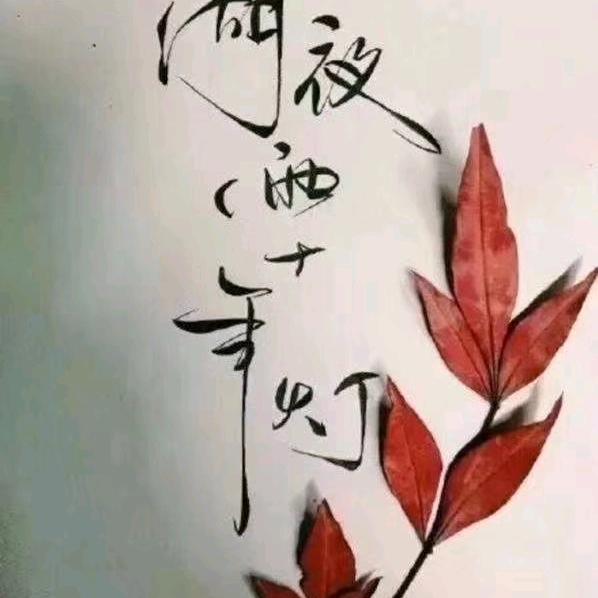 湖夜
雨
十
年
灯